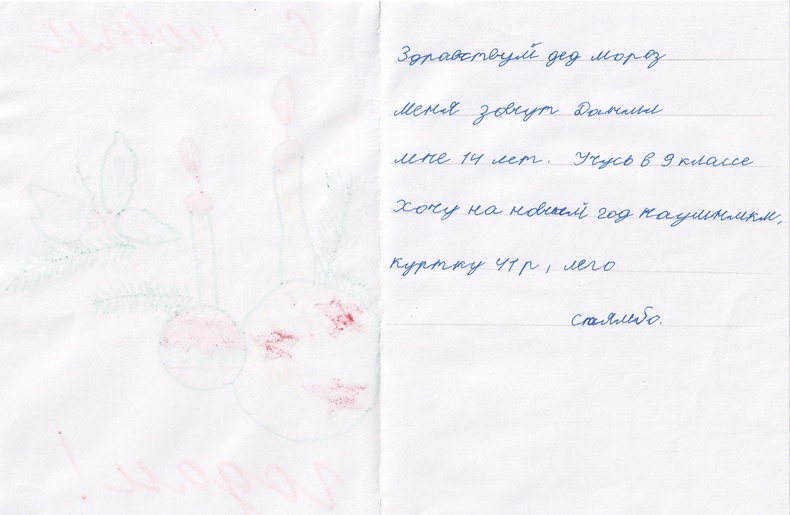 С новым
годом!
Здравствуй дед мороз
меня зовут Данил
мне 14 лет. Учусь в 9 классе
Хочу на новый год наушники,
куртку 41р, лего
спаямбо.